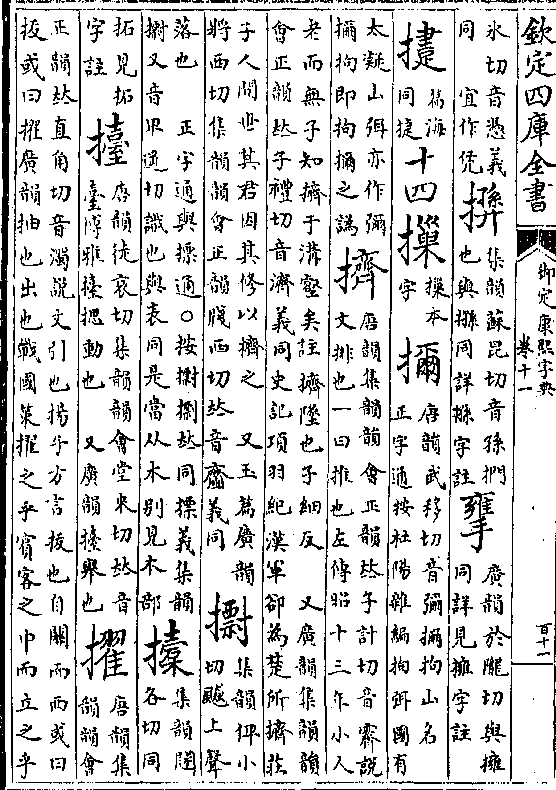 欽定四庫全書
御定康熙字典
卷十一
百十一
氷切音憑義同　宜作凭
集韻蘇昆切音孫捫也與搎同詳搎字註
廣韻於隴切與擁同詳見擁字註
篇海同捷
十四
操本字
擟 唐韻武移切音彌擟拘山名正字通按杜陽雜編拘弭國有
太凝山弭亦作彌擟拘即拘擟之譌
擠 唐韻集韻韻會正韻𠀤子計切音霽說文排也一曰推也左傳昭十三年小人
老而無子知擠于溝壑矣註擠墜也子細反　又廣韻集韻韻會正韻𠀤子禮切音濟義同史記項羽紀漢軍卻為楚所擠莊
子人間世其君因其修以擠之　又玉篇廣韻將西切集韻韻會正韻牋西切𠀤音齎義同
集韻俾小切飈上聲
落也　正字通與摽通○按𠀤同摽義集韻又音卑遥切識也與表同是當从木别見木部
集韻闥各切同
拓見拓字註
擡 唐韻徒哀切集韻韻會堂來切𠀤音臺博雅擡揌動也　又廣韻擡舉也
擢 唐韻集韻韻會
正韻𠀤直角切音濁說文引也揚子方言拔也自關而西或曰拔或曰擢廣韻抽也出也戰國策擢之乎賓客之中而立之乎